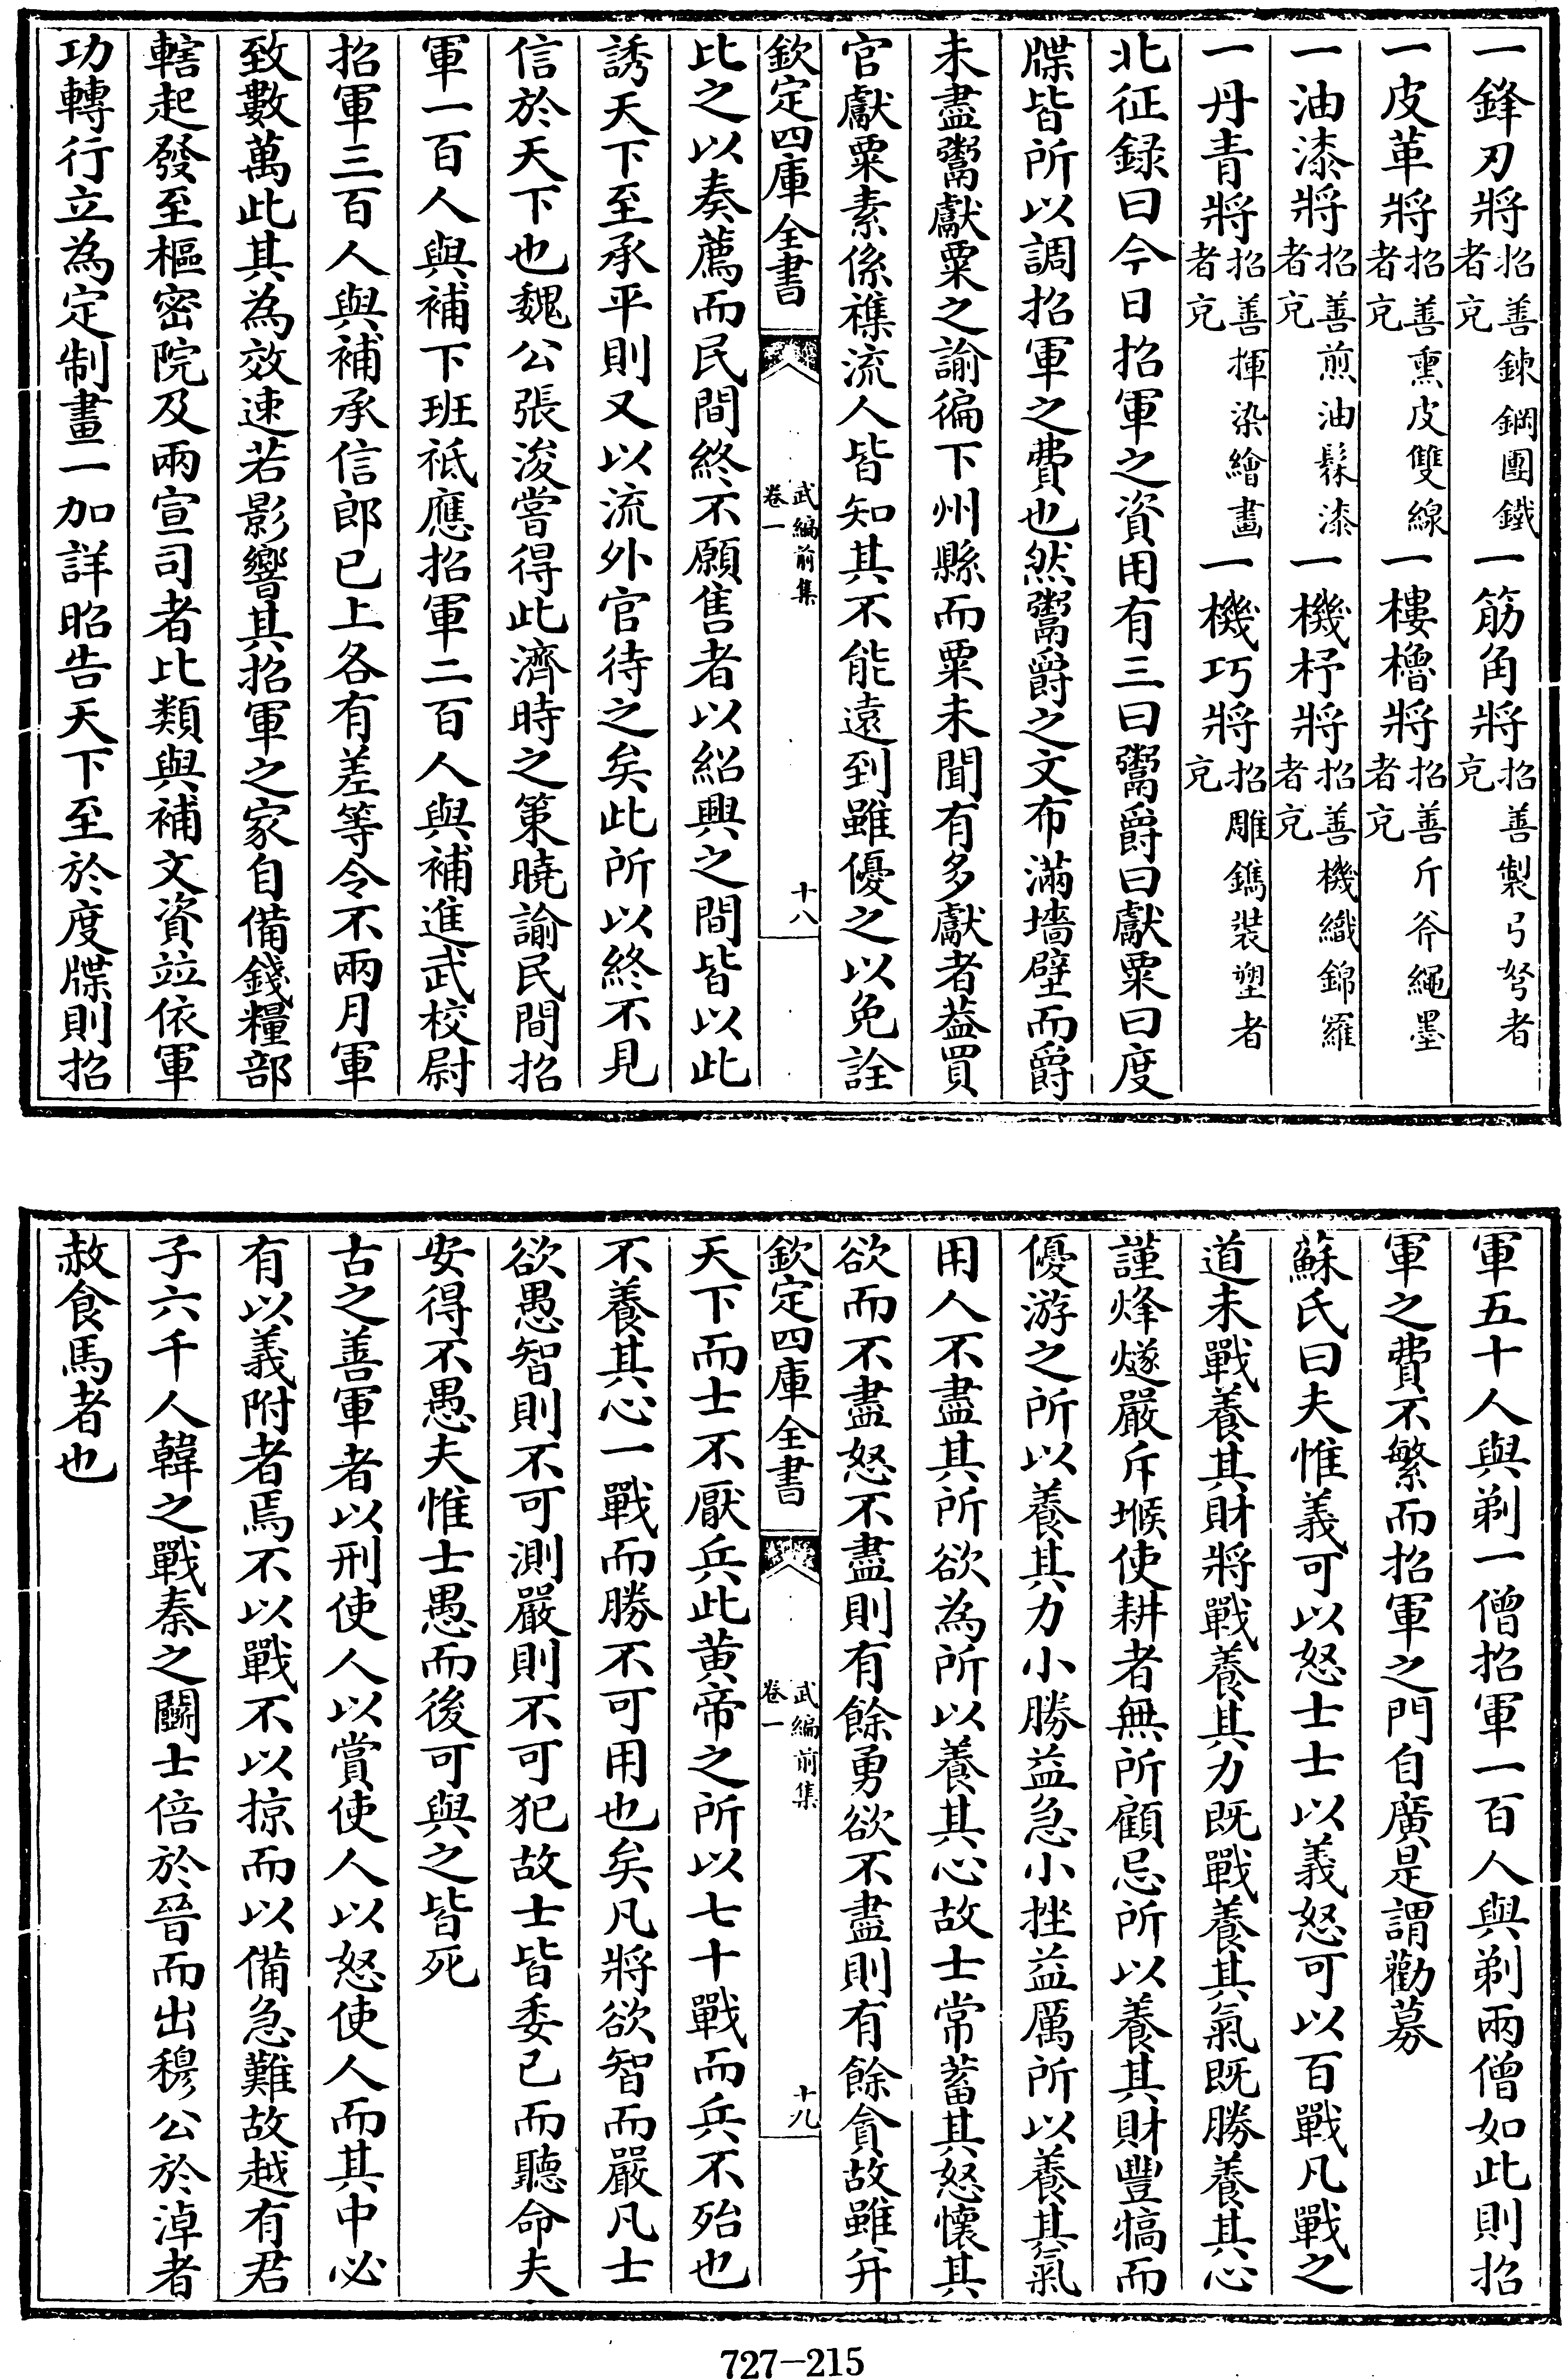 一鋒刃將招善鍊鋼團鐵者充一筋角將招善製弓弩者充
一皮革將招善熏皮雙線者充一樓櫓將招善斤斧繩墨者充
一油漆將招善煎油髹漆者充一機杼將招善機織錦羅者充
一丹青將招善揮染繪畫者充一機巧將招雕鐫裝塑者充
北征録曰今日招軍之資用有三曰鬻爵曰獻粟曰度
牒皆所以調招軍之費也然鬻爵之文布滿墻壁而爵
未盡鬻獻粟之諭徧下州縣而粟未聞有多獻者葢買
官獻粟素係襍流人皆知其不能遠到雖優之以免詮
欽定四庫全書
武編前集
卷一
十八
比之以奏薦而民間終不願售者以紹興之間皆以此
誘天下至承平則又以流外官待之矣此所以終不見
信於天下也魏公張浚嘗得此濟時之策曉諭民間招
軍一百人與補下班祗應招軍二百人與補進武校尉
招軍三百人與補承信郎已上各有差等令不兩月軍
致數萬此其為效速若影響其招軍之家自備錢糧部
轄起發至樞密院及兩宣司者比類與補文資竝依軍
功轉行立為定制畫一加詳昭告天下至於度牒則招
軍五十人與剃一僧招軍一百人與剃兩僧如此則招
軍之費不繁而招軍之門自廣是謂勸募
蘇氏曰夫惟義可以怒士士以義怒可以百戰凡戰之
道未戰養其財將戰養其力既戰養其氣既勝養其心
謹烽燧嚴斥堠使耕者無所顧忌所以養其財豐犒而
優游之所以養其力小勝益急小挫益厲所以養其氣
用人不盡其所欲為所以養其心故士常蓄其怒懷其
欲而不盡怒不盡則有餘勇欲不盡則有餘貪故雖并
欽定四庫全書
武編前集
卷一
十九
天下而士不厭兵此黄帝之所以七十戰而兵不殆也
不養其心一戰而勝不可用也矣凡將欲智而嚴凡士
欲愚智則不可測嚴則不可犯故士皆委已而聽命夫
安得不愚夫惟士愚而後可與之皆死
古之善軍者以刑使人以賞使人以怒使人而其中必
有以義附者焉不以戰不以掠而以備急難故越有君
子六千人韓之戰秦之鬬士倍於晉而出穆公於淖者
赦食馬者也
727-215